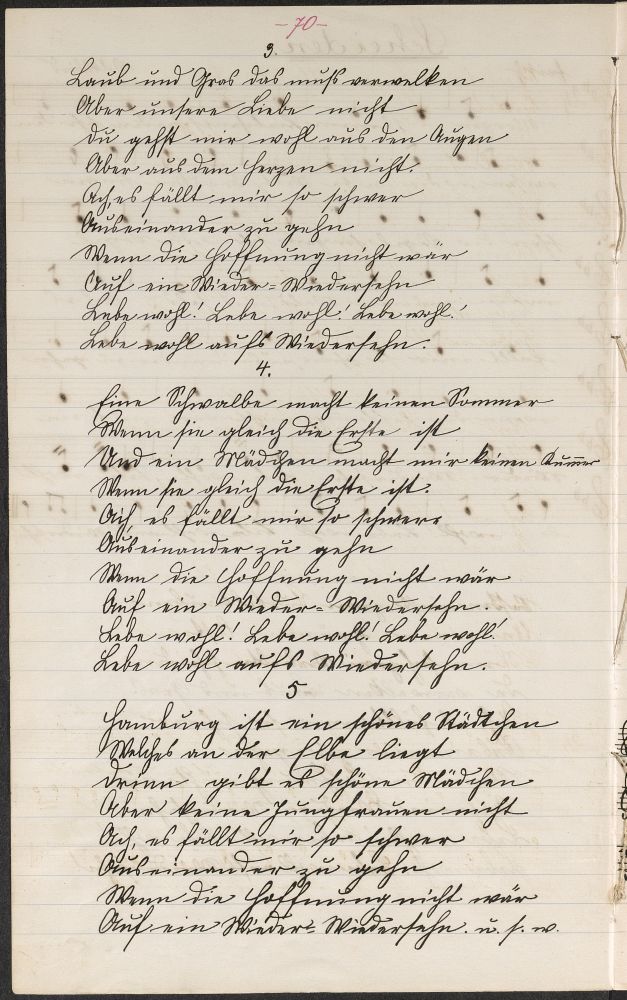 -70-
3.
Laub und Gras das muß verwelken
Aber unsere Liebe nicht
Du gehst mir wohl aus den Augen
Aber aus dem Herzen nicht.
Ach, es fällt mir so schwer
Auseinander zu gehn
Wenn die Hoffnung nicht wär
Auf ein Wieder-Wiedersehn
Lebe wohl! Lebe wohl! Lebe wohl!
Lebe wohl aufs Wiedersehn.
4.
Eine Schwalbe macht keinen Sommer
Wenn sie gleich die Erste ist
Und ein Mädchen macht mir keinen Kum̅er
Wenn sie gleich die Erste ist.
Ach, es fällt mir so schwer
Auseinander zu gehn
Wenn die Hoffnung nicht wär
Auf ein Wieder-Wiedersehn.
Lebe wohl! Lebe wohl! Lebe wohl!
Lebe wohl aufs Wiedersehn.
5
Hamburg ist ein schönes Städtchen
Welches an der Elbe liegt
Drinn gibt es schöne Mädchen
Aber keine Jungfrauen nicht
Ach, es fällt mir so schwer
Auseinander zu gehn
Wenn die Hoffnung nicht wär
Auf ein Wieder-Wiedersehn. u. s. w.